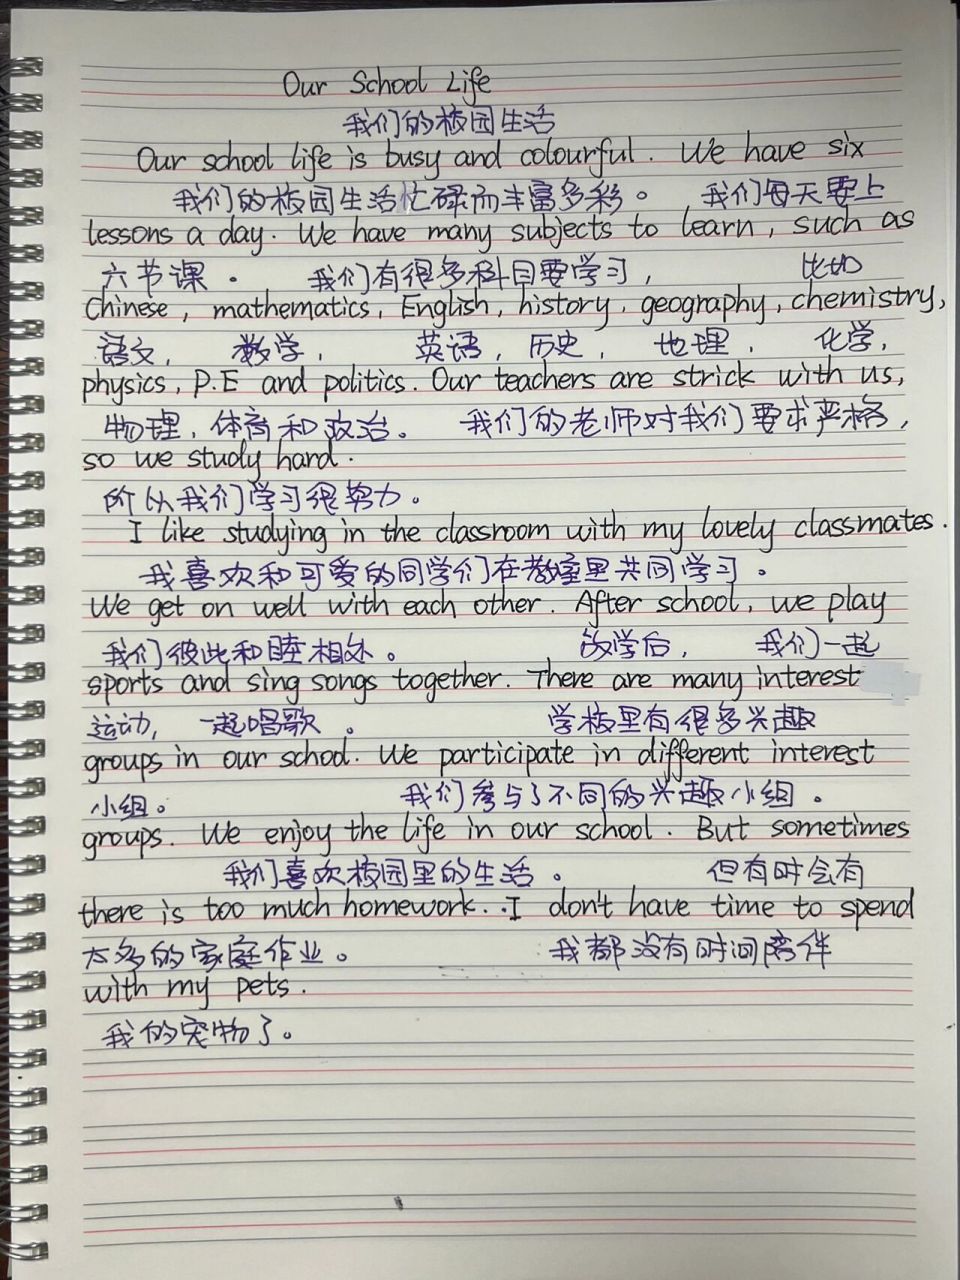 Our School Life
我们的校园生活
Our school life is busy and colourful. We have six
我们的校园生活忙碌而丰富多彩。 我们每天要上
lessons a day. We have many subjects to learn, such as
六节课。 我们有很多科目要学习, 比如
Chinese, mathematics, English, history, geography, chemistry,
语文, 数学, 英语, 历史, 地理, 化学,
physics, P.E and politics. Our teachers are strick with us,
物理, 体育和政治。 我们的老师对我们要求严格,
so we study hard.
所以我们学习很努力。
I like studying in the classroom with my lovely classmates.
我喜欢和可爱的同学们在教室里共同学习。
We get on well with each other. After school, we play
我们彼此和睦相处。 放学后, 我们一起
sports and sing songs together. There are many interest
运动, 一起唱歌。 学校里有很多兴趣
groups in our school. We participate in different interest
小组。 我们参与了不同的兴趣小组。
groups. We enjoy the life in our school. But sometimes
我们喜欢校园里的生活。 但有时会有
there is too much homework. I don't have time to spend
太多的家庭作业。 我都没有时间陪伴
with my pets.
我的宠物了。